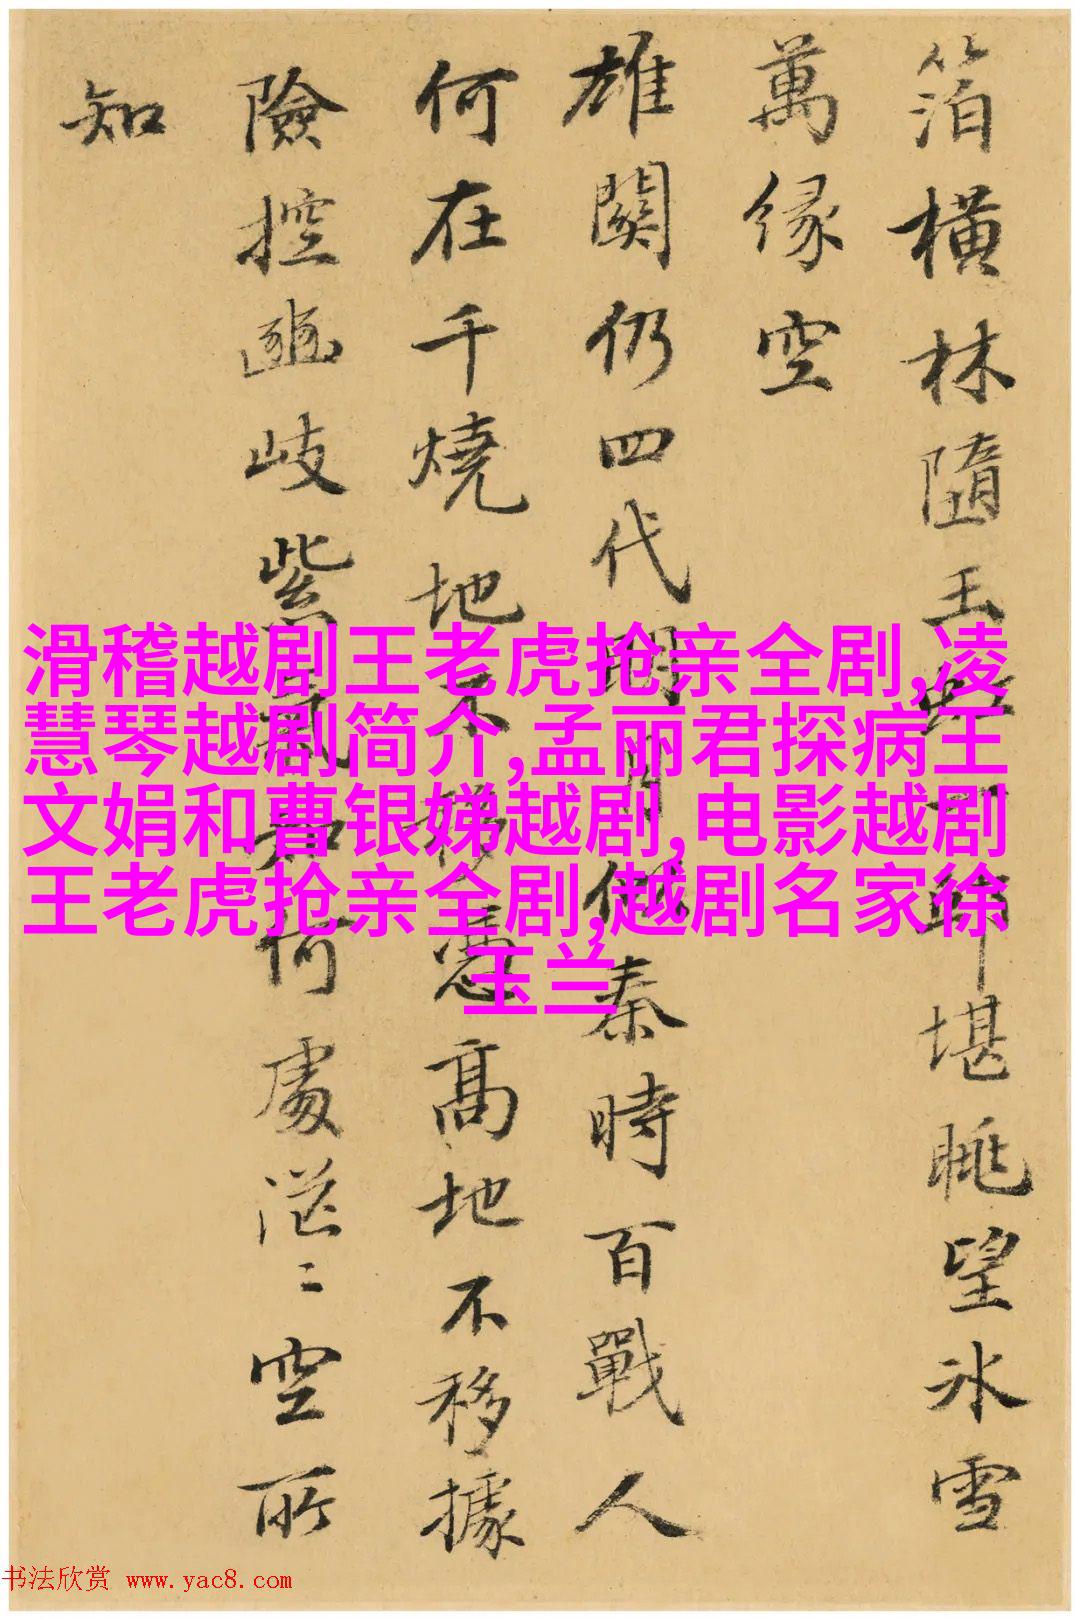 箔橫林隨玉堪眺望冰雪
萬緣空
雄關仍四代明月秦時百戰人
何在千燒地不移憑高地不移據
險控幽岐紫氣知何處茫〻空所
知
滑稽越剧王老虎抢亲全剧,凌
慧琴越剧简介,孟丽君探病王
文娟和曹银娣越剧,电影越剧
王老虎抢亲全剧,越剧名家徐
玉兰
书法欣赏 www.yac8.com